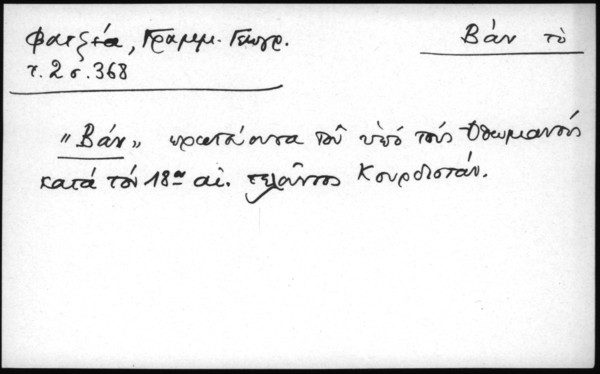 Φατζέα, Γραμμ. Γεωγρ.
τ. 2 σ. 368
Βάν τὸ
"Βάν" πρωτεύουσα τοῦ ὑπό τούς Ὀθωμανούς
κατά τόν 18ον αἰ. τελοῦντος Κουρδιστάν.